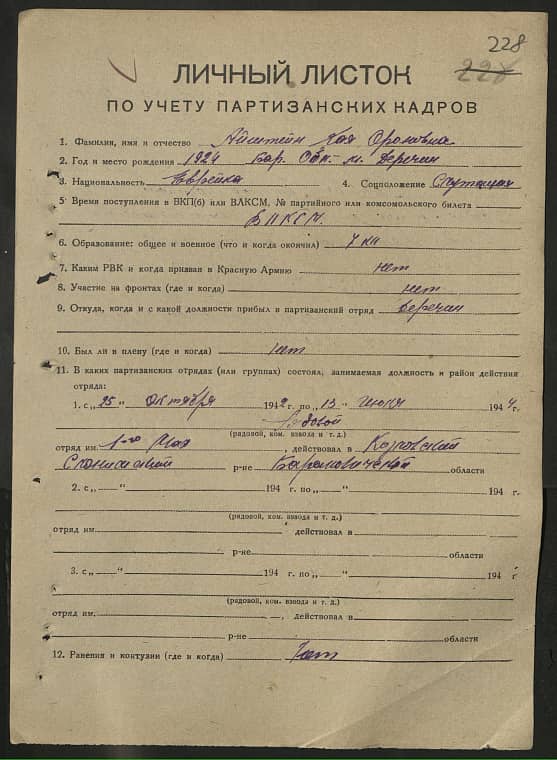 228
ЛИЧНЫЙ ЛИСТОК
ПО УЧЕТУ ПАРТИЗАНСКИХ КАДРОВ
1. Фамилия, имя и отчество Ароновна
2. Год и место рождения 1924 Бар. Обл. м. Деречин
3. Национальность Еврейка 4. Соцположение Служащая
5. Время поступления в ВКП(б) или ВЛКСМ, № партийного или комсомольского билета
ВЛКСМ.
6. Образование: общее и военное (что и когда окончил) 7 кл
7. Каким РВК и когда призван в Красную Армию нет
8. Участие на фронтах (где и когда) нет
9. Откуда, когда и с какой должности прибыл в партизанский отряд Деречин
10. Был ли в плену (где и когда) нет
11. В каких партизанских отрядах (или группах) состоял, занимаемая должность и район действия
отряда:
1. с „25" Октября 1942 г. по „13" Июля 1944 г.
Рядовой
(рядовой, ком. взвода и т. д.)
отряд им. 1-го Мая, действовал в Козловский
Слонимский р-не Барановической области
2. с „ " 194 г. по „ " 194 г.
(рядовой, ком. взвода и т. д.)
отряд им. , действовал в
р-не области
3. с „ " 194 г. по „ " 194 г
(рядовой, ком. взвода и т. д.)
отряд им. , действовал в
р-не области
12. Ранения и контузии (где и когда) Нет